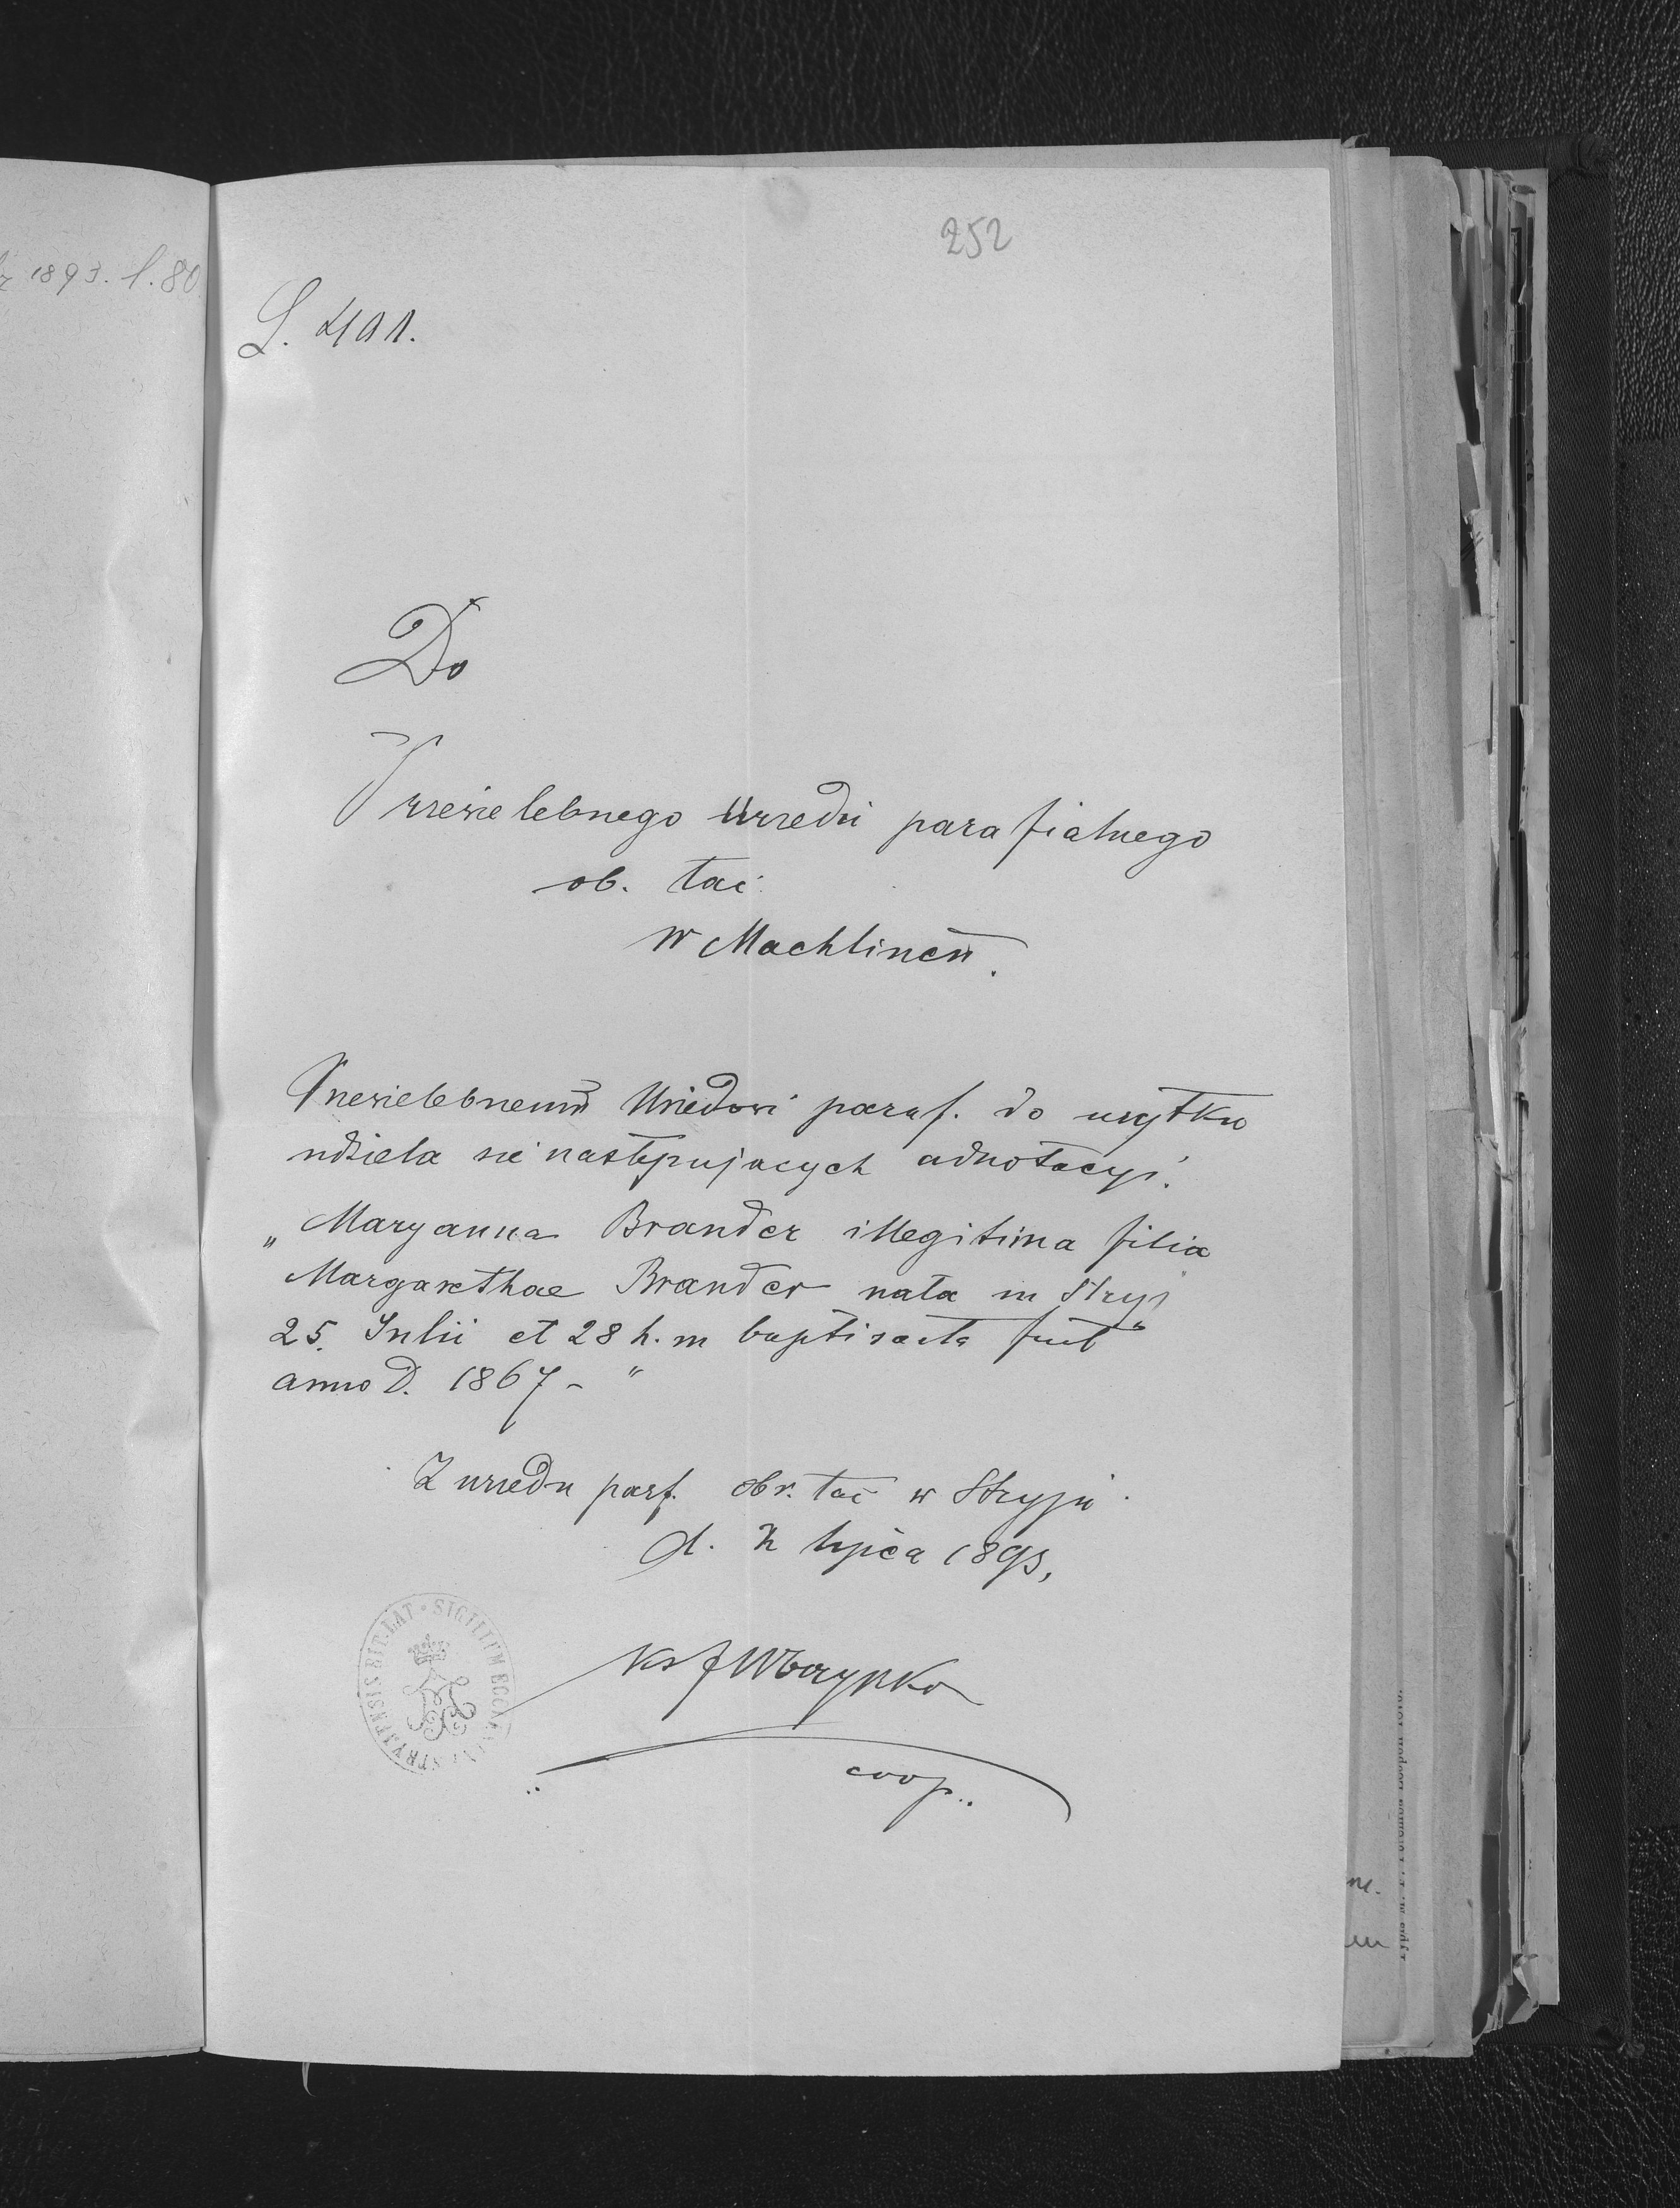 1893. l. 80
252
L. 401.
Do
Przewielebnego Urzedu parafialnego
ob. łać.
w Machlińcu.
Przewielebnemu Urzedowi paraf. do uzytku
udziela sie następujacych adnotacyi.
„Maryanna Brander illegitima filia
Margarethae Brander nata in Stryj
25. Julii et 28 h. m baptisata fuit
anno D. 1867 - "
Z urzedu parf. obr. łać w Stryju.
d. lipca 1893,
Ks J
coop..
SIGILLUM ECC STRYJENSIS RIT. LAT
ne.